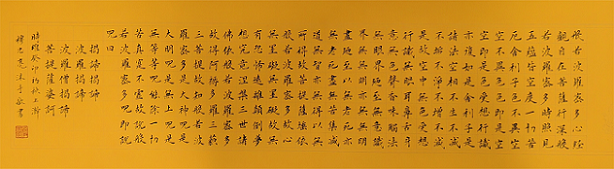 般若波羅蜜多心經
觀自在菩薩行深般
若波羅蜜多時照見
五蘊皆空度一切苦
厄舍利子色不異空
空不異色色即是空
空即是色受想行識
亦復如是舍利子是
諸法空相不生不滅
不垢不淨不增不減
是故空中無色無受想
行識無眼耳鼻舌身
意無色聲香味觸法
無眼界乃至無意識
界無無明亦無無明
盡乃至無老死亦無
老死盡無苦集滅
道無智亦無得以無
所得故菩提薩埵依
般若波羅蜜多故心
無罣礙無罣礙故無
有恐怖遠離顛倒夢
想究竟涅槃三世諸
佛依般若波羅蜜多
故得阿耨多羅三藐
三菩提故知般若波
羅蜜多是大神咒是
大明咒是無上咒是
無等等咒能除一切
苦真實不虛故說般
若波羅蜜多咒即說
咒曰
揭諦揭諦
波羅揭諦
波羅僧揭諦
菩提薩婆訶
時維癸卯初秋上澣
書